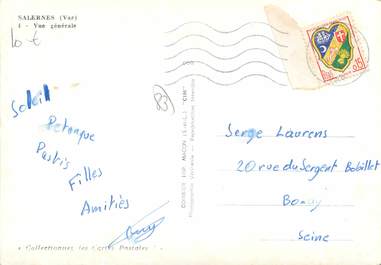 SALERNES (Var)
4 - Vue générale
10 €
83
Soleil
Petanque
Pastis
Filles
Amitiés
Serge Laurens
20 rue du Sergent Bobillot
Seine
COMBIER IMP. MACON (S.-et-L.) "CIM"
Photographie Véritable - Reproduction Interdite
0,15
" Collectionnez les Cartes Postales "